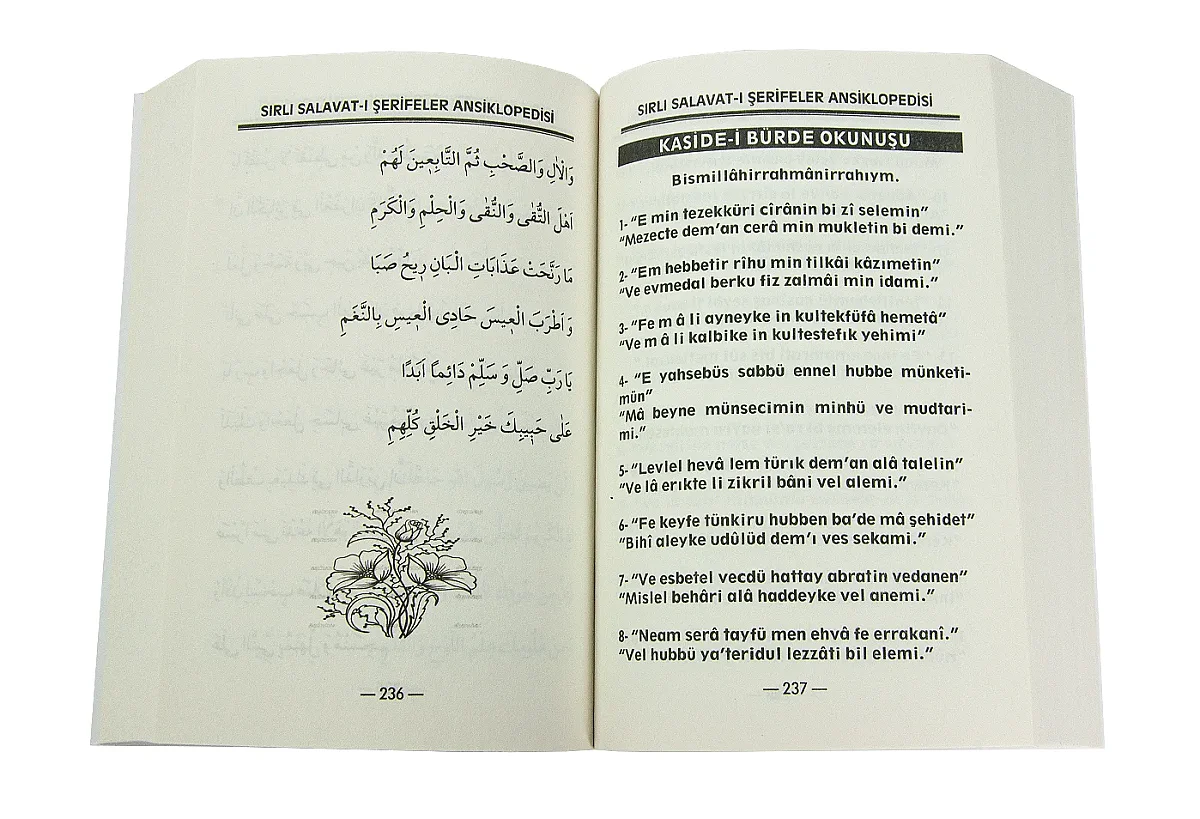 SIRLI SALAVAT-I ŞERİFELER ANSİKLOPEDİSİ
وَالْاٰلِ وَالصَّحْبِ ثُمَّ التَّابِعٖينَ لَهُمْ
اَهْلَ التُّقٰى وَالنُّقٰى وَالْحِلْمِ وَالْكَرَمِ
مَا رَنَّحَتْ عَذَابَاتِ الْبَانِ رٖيحُ صَبَا
وَاَطْرَبَ الْعٖيسَ حَادِى الْعٖيسِ بِالنَّغَمِ
يَارَبِّ صَلِّ وَسَلِّمْ دَائِماً اَبَدًا
عَلٰى حَبٖيبِكَ خَيْرِ الْخَلْقِ كُلِّهِمِ
— 236 —
SIRLI SALAVAT-I ŞERİFELER ANSİKLOPEDİSİ
KASİDE-İ BÜRDE OKUNUŞU
Bismillâhirrahmânirrahıym.
1- “E min tezekküri cîrânin bi zî selemin”
“Mezecte dem’an cerâ min mukletin bi demi.”
2- “Em hebbetir rîhu min tilkâi kâzımetin”
“Ve evmedal berku fiz zalmâi min idami.”
3- “Fe m â l i ayneyke in kultekfüfâ hemetâ”
“Ve m â l i kalbike in kultestefık yehimi”
4- “E yahsebüs sabbü ennel hubbe münketi-
mün”
“Mâ beyne münsecimin minhü ve mudtari-
mi.”
5- “Levlel hevâ lem türık dem’an alâ talelin”
“Ve lâ erıkte li zikril bâni vel alemi.”
6- “Fe keyfe tünkiru hubben ba’de mâ şehidet”
“Bihî aleyke udûlüd dem’ı ves sekami.”
7- “Ve esbetel vecdü hattay abratin vedanen”
“Mislel behâri alâ haddeyke vel anemi.”
8- “Neam serâ tayfü men ehvâ fe errakanî.”
“Vel hubbü ya’teridul lezzâti bil elemi.”
— 237 —